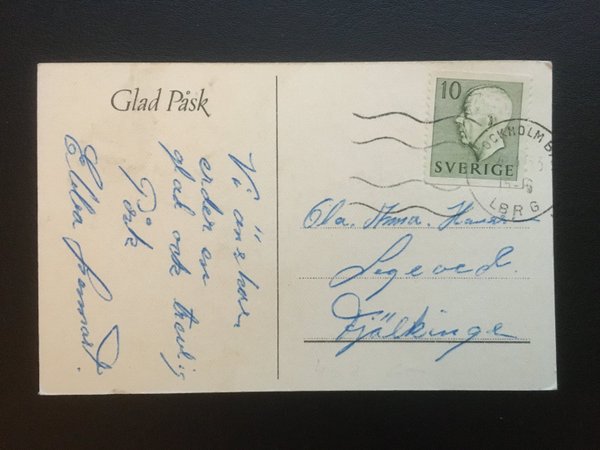 Glad Påsk
Vi önskar
erder en
glad och trevlig
Påsk
Ebba Lennart
10
SVERIGE
STOCKHOLM BAN
LBRG
Ola, Anna, Hasse
Legeved
Fjälkinge